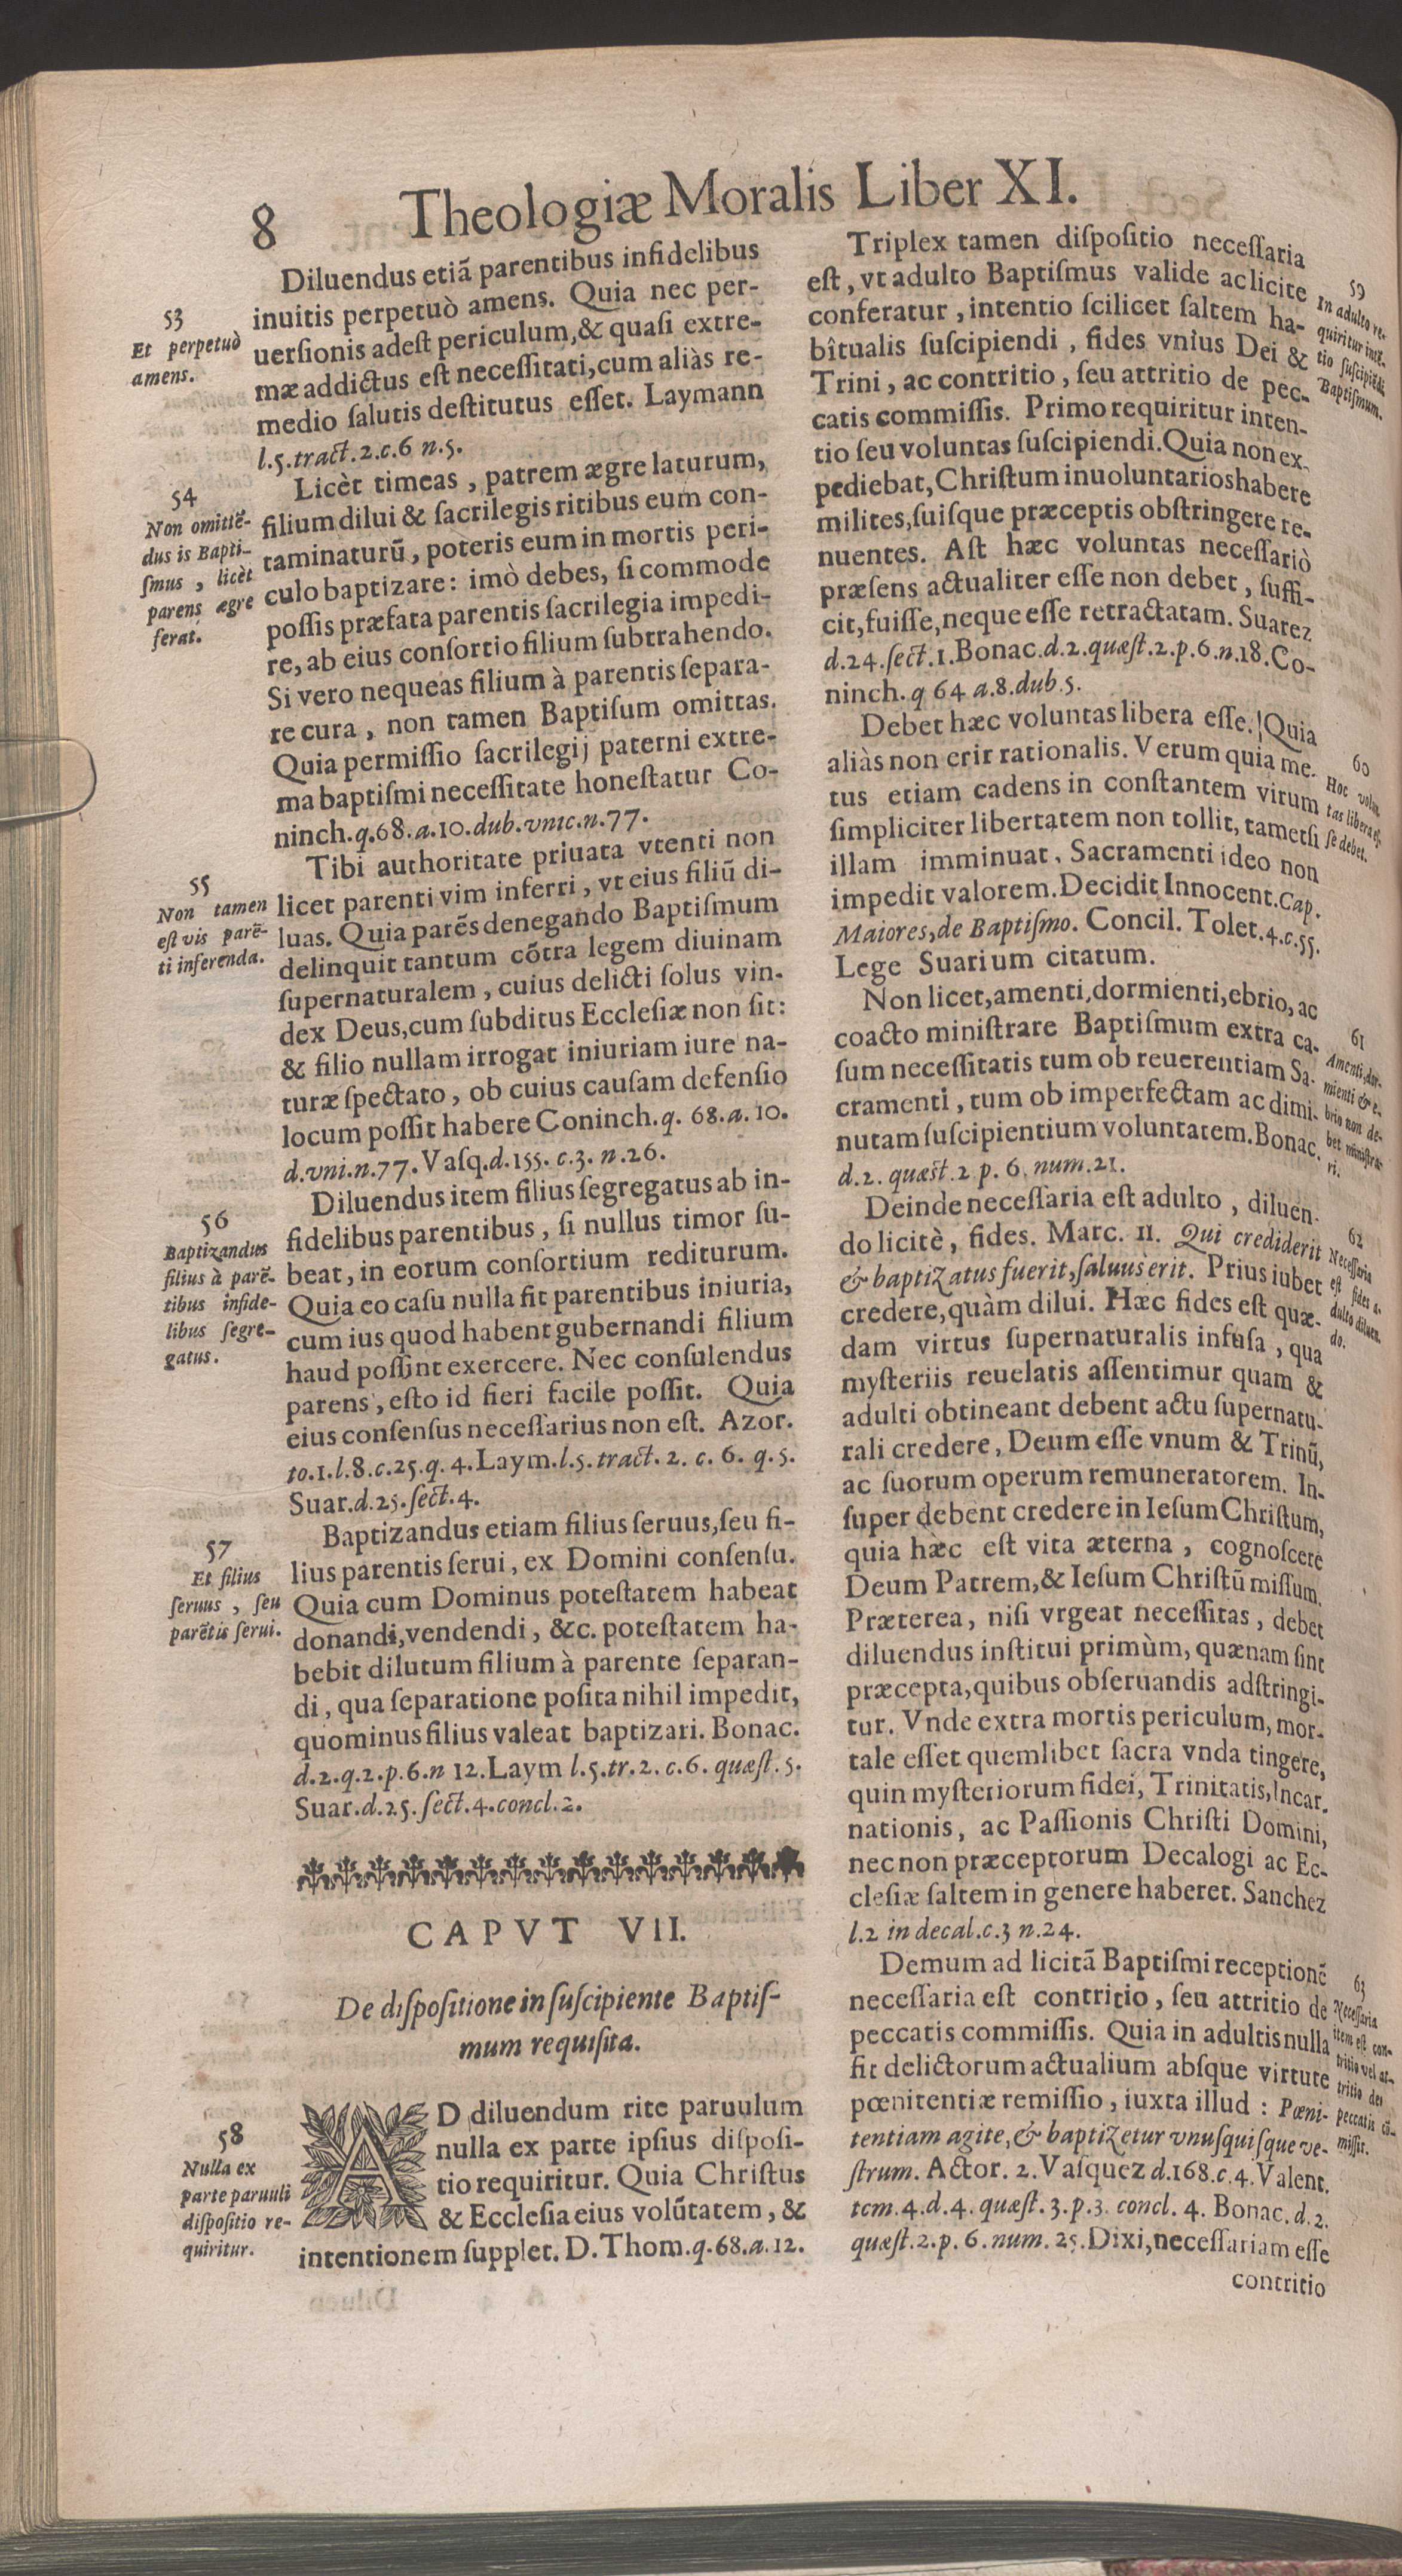 8
Theologiæ Moralis Liber XI.
Diluendus etiã parentibus infidelibus
inuitis perpetuò amens. Quia nec per-
uersionis adest periculum,& quasi extre-
mæ addictus est necessitati,cum aliàs re-
medio salutis destitutus esset. Laymann
l.5.tract.2.c.6 n.5.
53
Et perpetuò
amens.
Licèt timeas , patrem ægre laturum,
filium dilui & sacrilegis ritibus eum con-
taminaturũ, poteris eum in mortis peri-
culo baptizare: imò debes, si commode
possis præfata parentis sacrilegia impedi-
re, ab eius consortio filium subtrahendo.
Si vero nequeas filium à parentis separa-
re cura , non tamen Baptisum omittas.
Quia permissio sacrilegij paterni extre-
ma baptismi necessitate honestatur Co-
ninch.q.68.a.10.dub.vnic.n.77.
54
Non omittẽ-
dus is Bapti-
smus , licèt
parens ægre
ferat.
Tibi authoritate priuata vtenti non
licet parenti vim inferri , vt eius filiũ di-
luas. Quia parẽs denegando Baptismum
delinquit tantum cõtra legem diuinam
supernaturalem , cuius delicti solus vin-
dex Deus,cum subditus Ecclesiæ non sit:
& filio nullam irrogat iniuriam iure na-
turæ spectato , ob cuius causam defensio
locum possit habere Coninch.q. 68.a.10.
d.vni.n.77.Vasq.d.155. c.3. n.26.
55
Non tamen
est vis parẽ-
ti inferenda.
Diluendus item filius segregatus ab in-
fidelibus parentibus , si nullus timor su-
beat, in eorum consortium rediturum.
Quia eo casu nulla fit parentibus iniuria,
cum ius quod habent gubernandi filium
haud possint exercere. Nec consulendus
parens , esto id fieri facile possit. Quia
eius consensus necessarius non est. Azor.
to.1.l.8.c.25.q. 4.Laym.l.5.tract. 2. c. 6. q.5.
Suar.d.25.sect.4.
56
Baptizandus
filius à parẽ-
tibus infide-
libus segre-
gatus.
Baptizandus etiam filius seruus,seu fi-
lius parentis serui , ex Domini consensu.
Quia cum Dominus potestatem habeat
donandi,vendendi , &c. potestatem ha-
bebit dilutum filium à parente separan-
di , qua separatione posita nihil impedit,
quominus filius valeat baptizari. Bonac.
d.2.q.2.p.6.n 12.Laym l.5.tr.2. c.6. quæst.5.
Suar.d.25.sect.4.concl.2.
57
Et filius
seruus , seu
parẽtis serui.
CAPVT VII.
De dispositione in suscipiente Baptis-
mum requisita.
AD diluendum rite paruulum
nulla ex parte ipsius disposi-
tio requiritur. Quia Christus
& Ecclesia eius volũtatem , &
intentionem supplet. D.Thom.q.68.a.12.
58
Nulla ex
parte paruuli
dispositio re-
quiritur.
Triplex tamen dispositio necessaria
est , vt adulto Baptismus valide ac licite
conferatur , intentio scilicet saltem ha-
bîtualis suscipiendi , fides vnius Dei &
Trini, ac contritio , seu attritio de pec-
catis commissis. Primo requiritur inten-
tio seu voluntas suscipiendi.Quia non ex-
pediebat, Christum inuoluntarios habere
milites,suisque præceptis obstringere re-
nuentes. Ast hæc voluntas necessariò
præsens actualiter esse non debet , suffi-
cit,fuisse,neque esse retractatam. Suarez
d.24.sect.1.Bonac.d.2.quæst.2.p.6.n.18.Co-
ninch. q 64 a.8.dub.5.
59
In adulto re-
quiritur intẽ-
tio suscipiẽdi
Baptismum.
Debet hæc voluntas libera esse. Quia
aliàs non erir rationalis. Verum quia me-
tus etiam cadens in constantem virum
simpliciter libertatem non tollit, tametsi
illam imminuat , Sacramenti ideo non
impedit valorem.Decidit Innocent.Cap.
Maiores,de Baptismo. Concil. Tolet.4.c.55.
Lege Suarium citatum.
60
Hoc volun
tas libera es-
se debet.
Non licet,amenti,dormienti,ebrio, ac
coacto ministrare Baptismum extra ca-
sum necessitatis tum ob reuerentiam Sa-
cramenti , tum ob imperfectam ac dimi-
nutam suscipientium voluntatem.Bonac.
d.2. quæst.2 p. 6. num.21.
61
Amenti,dor-
mienti & e-
brio non de-
bet ministra-
ri.
Deinde necessaria est adulto , diluen-
do licitè, fides. Marc. 11. Qui crediderit
& baptizatus fuerit,saluus erit. Prius iubet
credere,quàm dilui. Hæc fides est quæ-
dam virtus supernaturalis infusa , qua
mysteriis reuelatis assentimur quam &
adulti obtineant debent actu supernatu-
rali credere, Deum esse vnum & Trinũ,
ac suorum operum remuneratorem. In-
super debent credere in Iesum Christum,
quia hæc est vita æterna , cognoscere
Deum Patrem,& Iesum Christũ missum.
Præterea, nisi vrgeat necessitas , debet
diluendus institui primùm, quænam sint
præcepta,quibus obseruandis adstringi-
tur. Vnde extra mortis periculum, mor-
tale esset quemlibet sacra vnda tingere,
quin mysteriorum fidei, Trinitatis,Incar-
nationis, ac Passionis Christi Domini,
necnon præceptorum Decalogi ac Ec-
clesiæ saltem in genere haberet. Sanchez
l.2 in decal.c.3 n.24.
62
Necessaria
est fides a-
dulto diluen-
do.
Demum ad licitã Baptismi receptionẽ
necessaria est contritio , seu attritio de
peccatis commissis. Quia in adultis nulla
fit delictorum actualium absque virtute
pœnitentiæ remissio , iuxta illud : Pœni-
tentiam agite,& baptizetur vnusquisque ve-
strum. Actor. 2.Vasquez d.168.c.4.Valent.
tom.4.d.4. quæst.3.p.3. concl. 4. Bonac. d.2.
quæst.2.p. 6.num. 25.Dixi,necessariam esse
63
Necessaria
item est con-
tritio vel at-
tritio de
peccatis cõ-
missis.
contritio